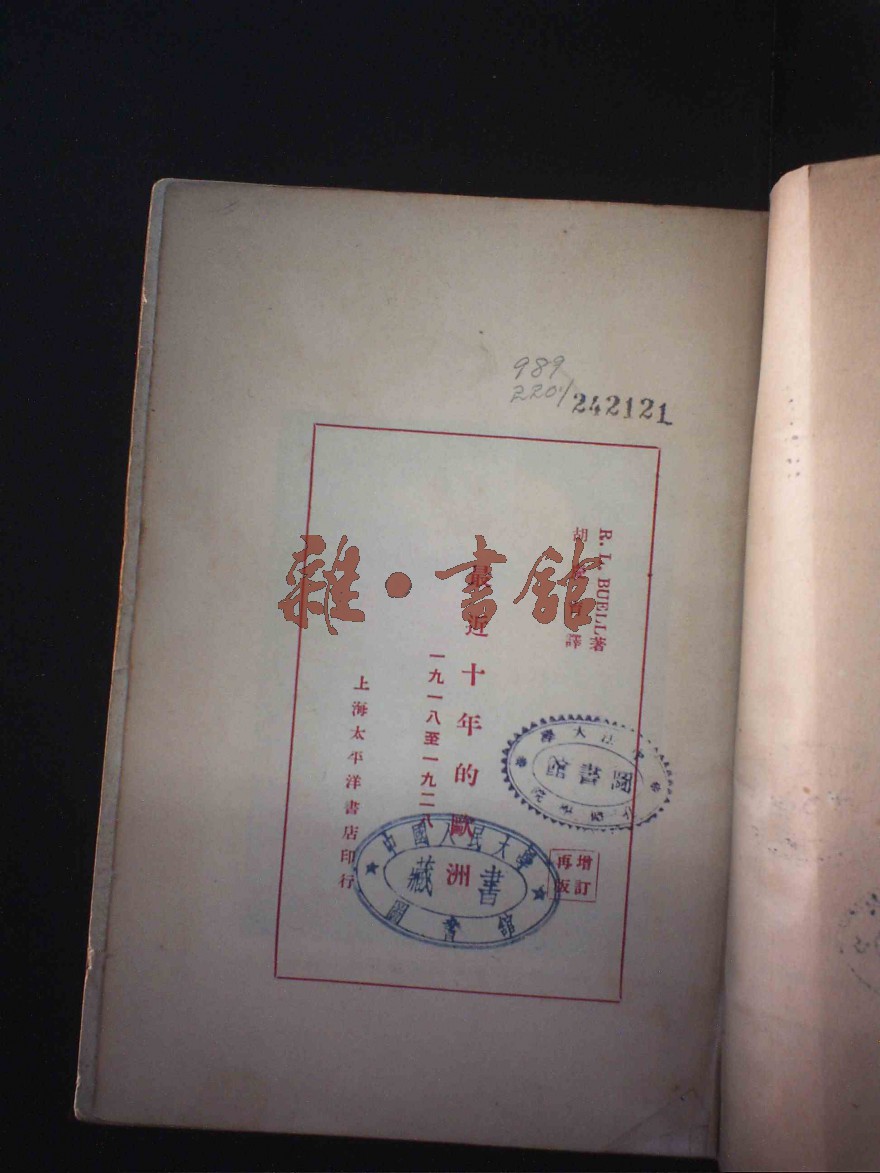 989
2201
242121
R. L. BUELL 著
胡 譯
最近十年的歐洲
一九一八至一九二八
增訂
再版
上海太平洋書店印行
圖書館
中國人民大學
藏書
圖書館
雜·書館